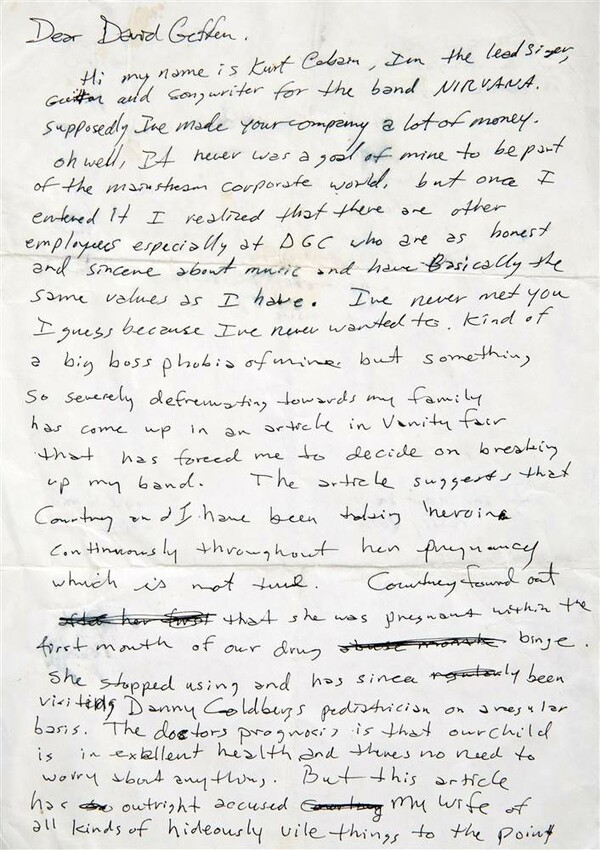 Dear David Geffen.
Hi my name is Kurt Cobain, Im the lead singer,
and songwriter for the band NIRVANA.
supposedly Ive made your company a lot of money.
oh well, It never was a goal of mine to be part
of the mainstream corporate world. but once I
entered it I realized that there are other
employees especially at DGC who are as honest
and sincere about music and have Basically the
same values as I have. Ive never met you
I guess because Ive never wanted to. Kind of
a big boss phobia of mine but something
so severely defremating towards my family
has come up in an article in Vanity fair
that has forced me to decide on breaking
up my band. The article suggests that
Courtney and I have been taking heroine
continuously throughout her pregnancy
which is not true. Courtney found out
after her first that she was pregnant within the
first month of our drug binge.
She stopped using and has since regularly been
visiting Danny Goldbergs pediatrician on a regular
basis. The doctors prognosis is that our child
is in exellent health and theres no need to
worry about anything. But this article
has outright accused Courtney My wife of
all kinds of hideously vile things to the point